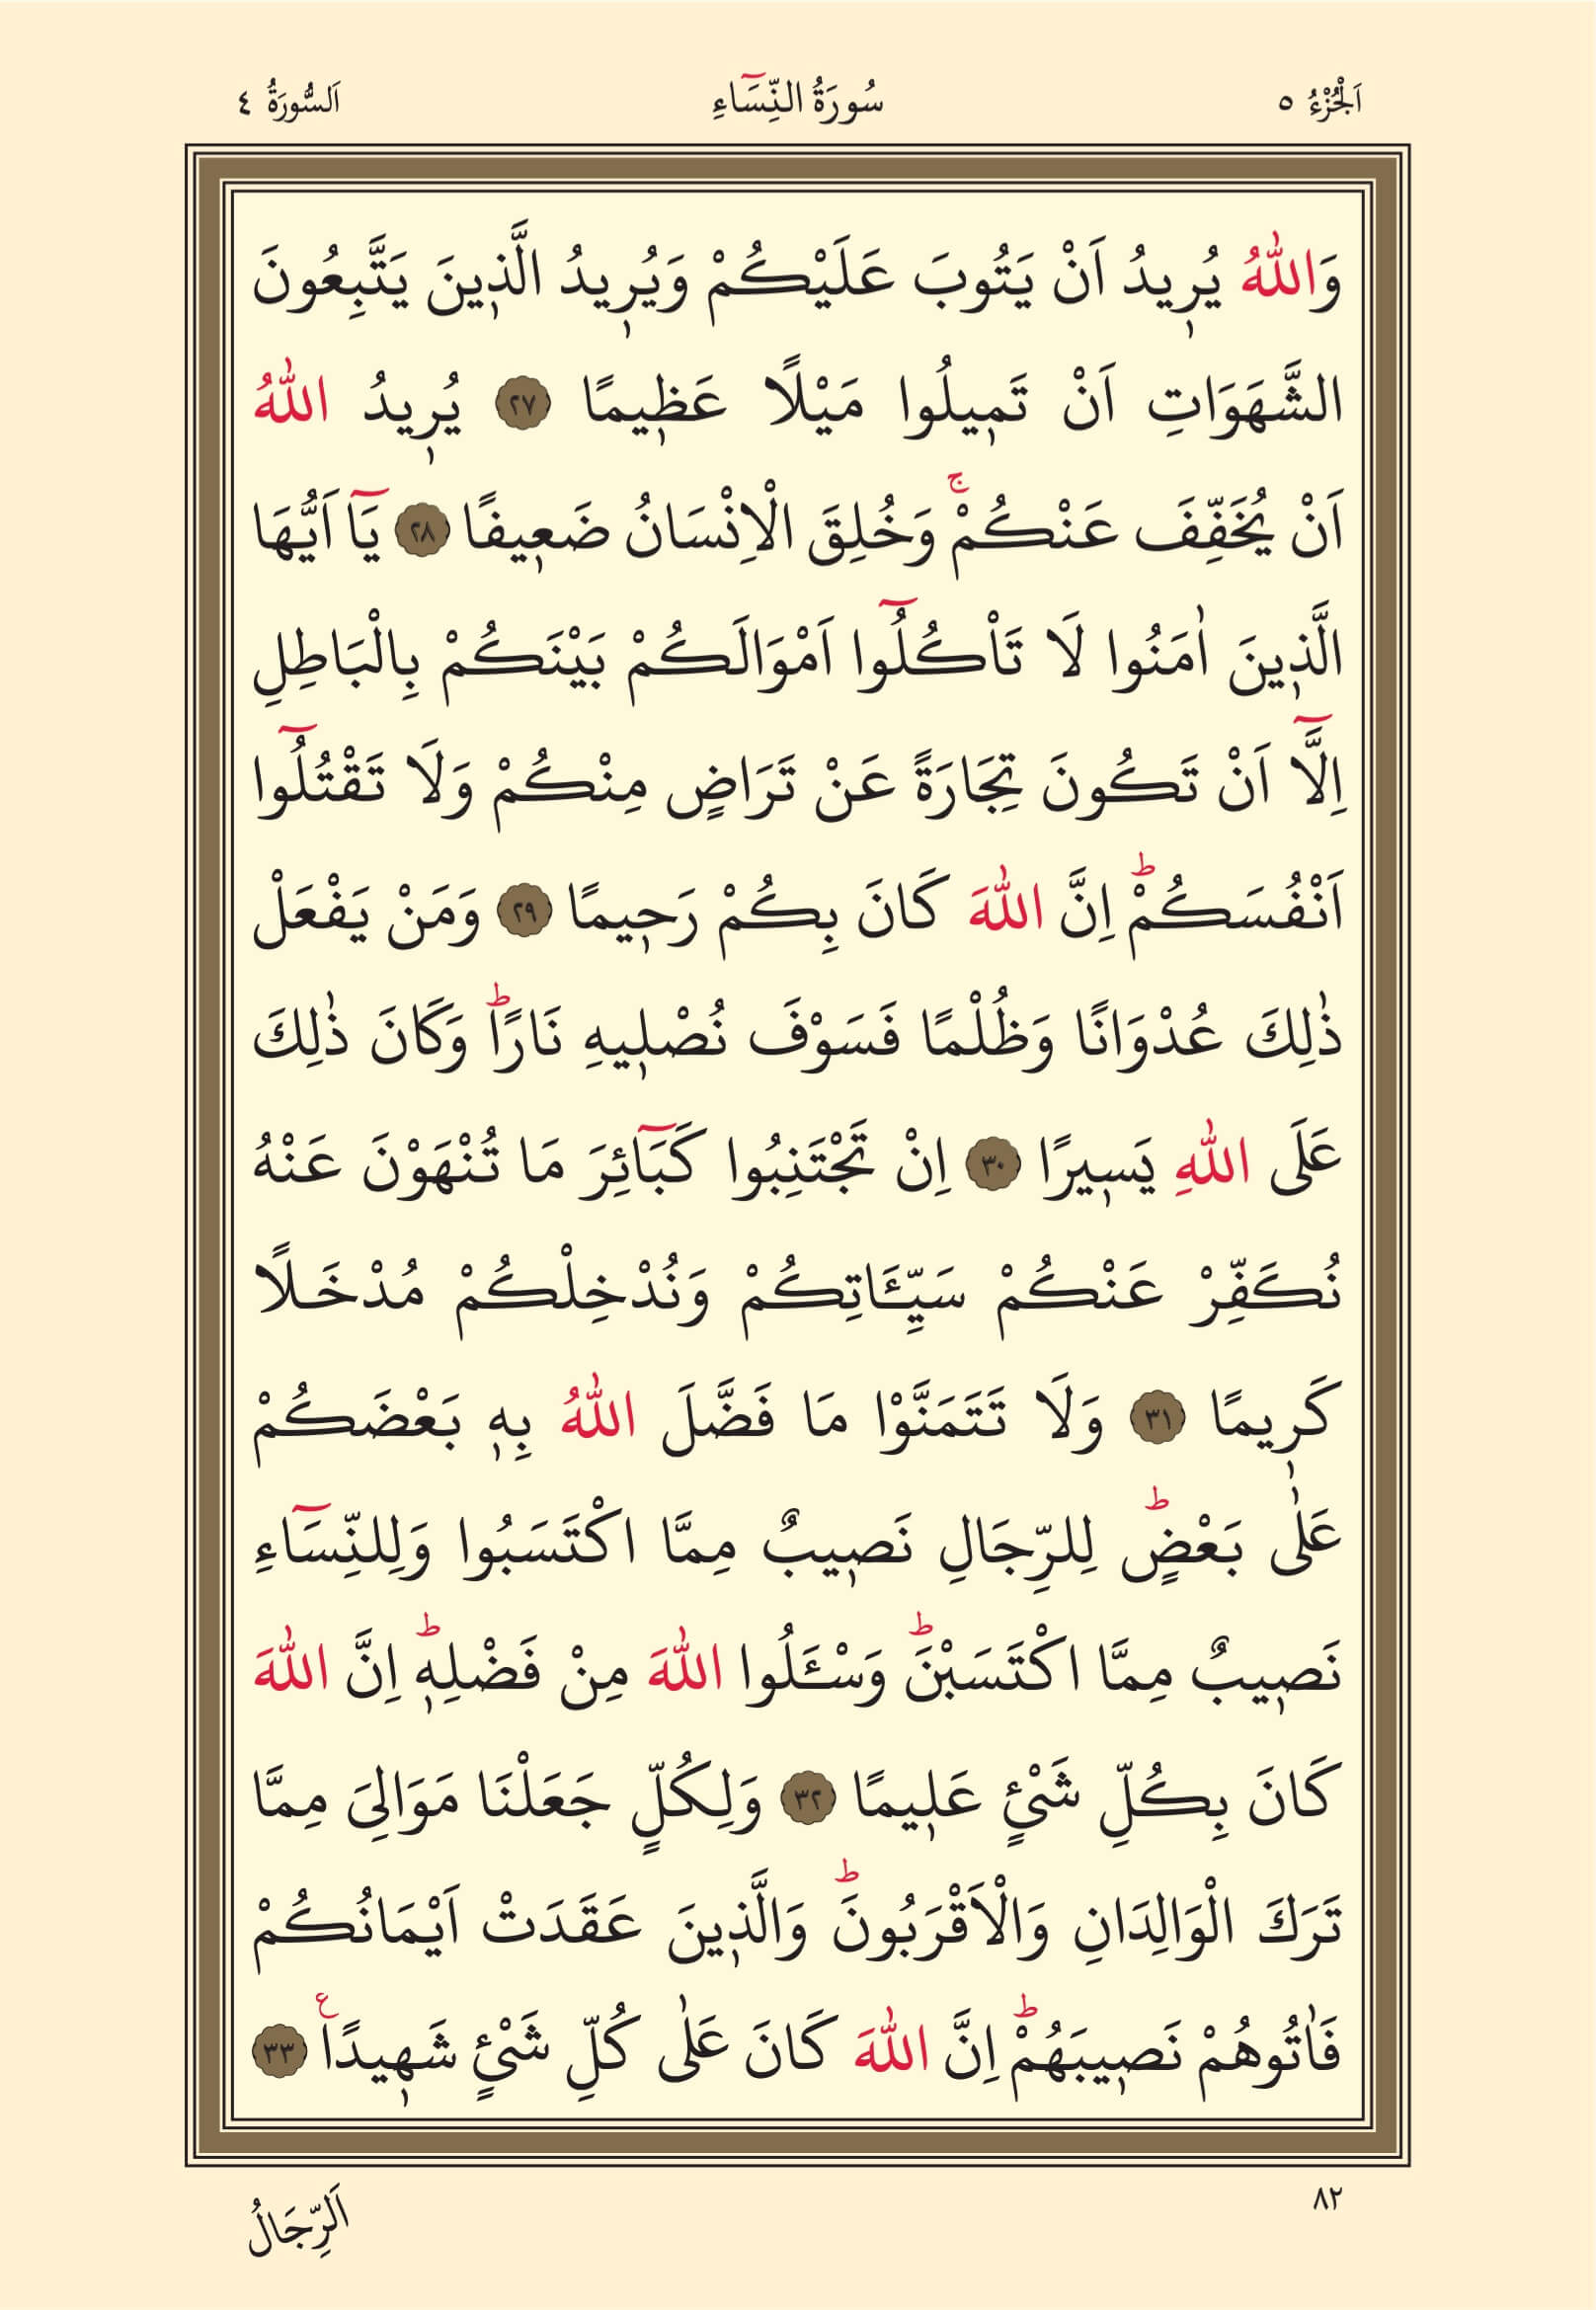 اَلْجُزْءُ ٥
سُورَةُ النِّسَٓاءِ
اَلسُّورَةُ ٤
وَاللّٰهُ يُر۪يدُ اَنْ يَتُوبَ عَلَيْكُمْ وَيُر۪يدُ الَّذ۪ينَ يَتَّبِعُونَ
الشَّهَوَاتِ اَنْ تَم۪يلُوا مَيْلًا عَظ۪يمًا ﴿٢٧﴾ يُر۪يدُ اللّٰهُ
اَنْ يُخَفِّفَ عَنْكُمْۚ وَخُلِقَ الْاِنْسَانُ ضَع۪يفًا ﴿٢٨﴾ يَٓا اَيُّهَا
الَّذ۪ينَ اٰمَنُوا لَا تَأْكُلُٓوا اَمْوَالَكُمْ بَيْنَكُمْ بِالْبَاطِلِ
اِلَّٓا اَنْ تَكُونَ تِجَارَةً عَنْ تَرَاضٍ مِنْكُمْ وَلَا تَقْتُلُٓوا
اَنْفُسَكُمْؕ اِنَّ اللّٰهَ كَانَ بِكُمْ رَح۪يمًا ﴿٢٩﴾ وَمَنْ يَفْعَلْ
ذٰلِكَ عُدْوَانًا وَظُلْمًا فَسَوْفَ نُصْل۪يهِ نَارًاؕ وَكَانَ ذٰلِكَ
عَلَى اللّٰهِ يَس۪يرًا ﴿٣٠﴾ اِنْ تَجْتَنِبُوا كَبَٓائِرَ مَا تُنْهَوْنَ عَنْهُ
نُكَفِّرْ عَنْكُمْ سَيِّـَٔاتِكُمْ وَنُدْخِلْكُمْ مُدْخَلًا
كَر۪يمًا ﴿٣١﴾ وَلَا تَتَمَنَّوْا مَا فَضَّلَ اللّٰهُ بِه۪ بَعْضَكُمْ
عَلٰى بَعْضٍؕ لِلرِّجَالِ نَص۪يبٌ مِمَّا اكْتَسَبُوا وَلِلنِّسَٓاءِ
نَص۪يبٌ مِمَّا اكْتَسَبْنَؕ وَسْـَٔلُوا اللّٰهَ مِنْ فَضْلِه۪ؕ اِنَّ اللّٰهَ
كَانَ بِكُلِّ شَيْئٍ عَل۪يمًا ﴿٣٢﴾ وَلِكُلٍّ جَعَلْنَا مَوَالِيَ مِمَّا
تَرَكَ الْوَالِدَانِ وَالْاَقْرَبُونَؕ وَالَّذ۪ينَ عَقَدَتْ اَيْمَانُكُمْ
فَاٰتُوهُمْ نَص۪يبَهُمْؕ اِنَّ اللّٰهَ كَانَ عَلٰى كُلِّ شَيْئٍ شَه۪يدًاࣖ ﴿٣٣﴾
٨٢
اَلرِّجَالُ